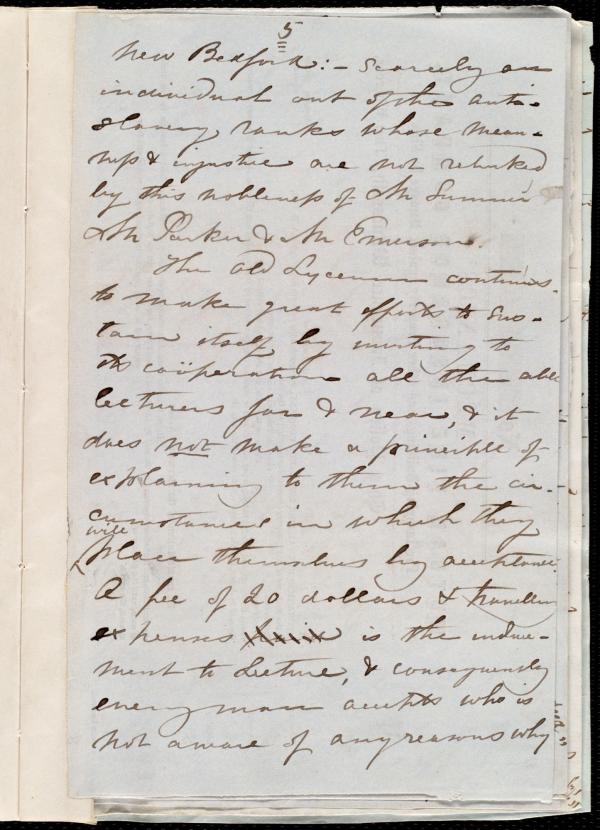 5
New Bedford:- Scarcely an
individual out of the anti-
slavery ranks whose mean-
ness & injustice are not rebuked
by this nobleness of Mr Sumner
Mr Parker & Mr Emerson.
The old Lyceum continues
to make great efforts to sus-
tain itself by inviting to
its coöperation all the able
lecturers far & near, & it
does not make a principle of
explaining to them the cir-
cumstances in which they
will
place themselves by acceptance.
A fee of 20 dollars & travelling
expenses is the induce-
ment to lecture, & consequently
every man accepts who is
not aware of any reasons why